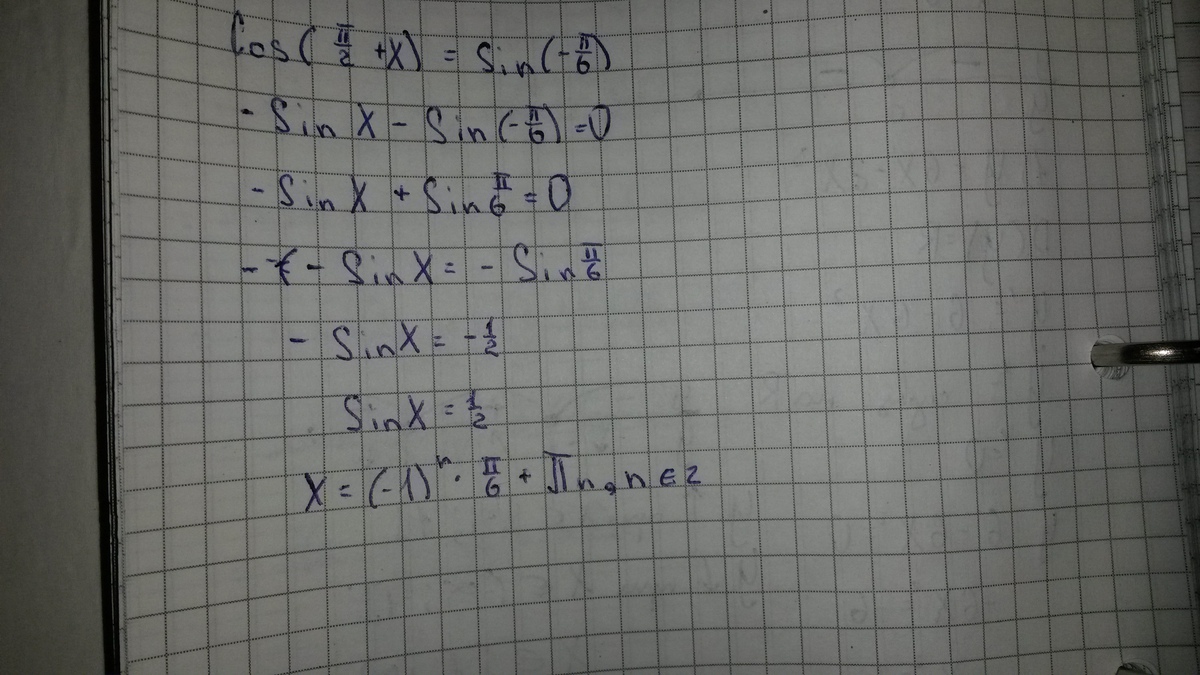 Cos(π/2 +x) = Sin(-π/6)
- Sin x - Sin(-π/6)=0
- Sin x + Sin π/6 = 0
- - Sin x = - Sin π/6
- Sin x = - 1/2
Sin x = 1/2
x = (-1)^n · π/6 + πn, n ∈ z